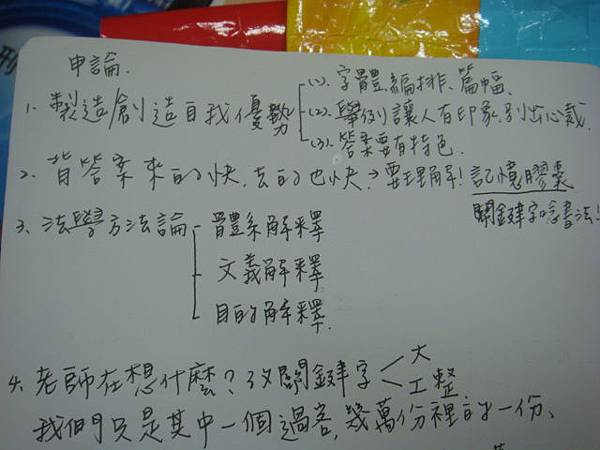 申論.
1. 製造/創造自我優勢
(1). 字體、編排、篇幅.
(2). 舉例讓人有印象,別出心裁.
(3). 答案要有特色.
2. 背答案來的快,去的也快→要理解!記憶膠囊
關鍵字唸書法!
3. 法學方法論
體系解釋
文義解釋
目的解釋.
4. 老師在想什麼?改關鍵字
大
工整
我們只是其中一個過客,幾萬份裡的一份、